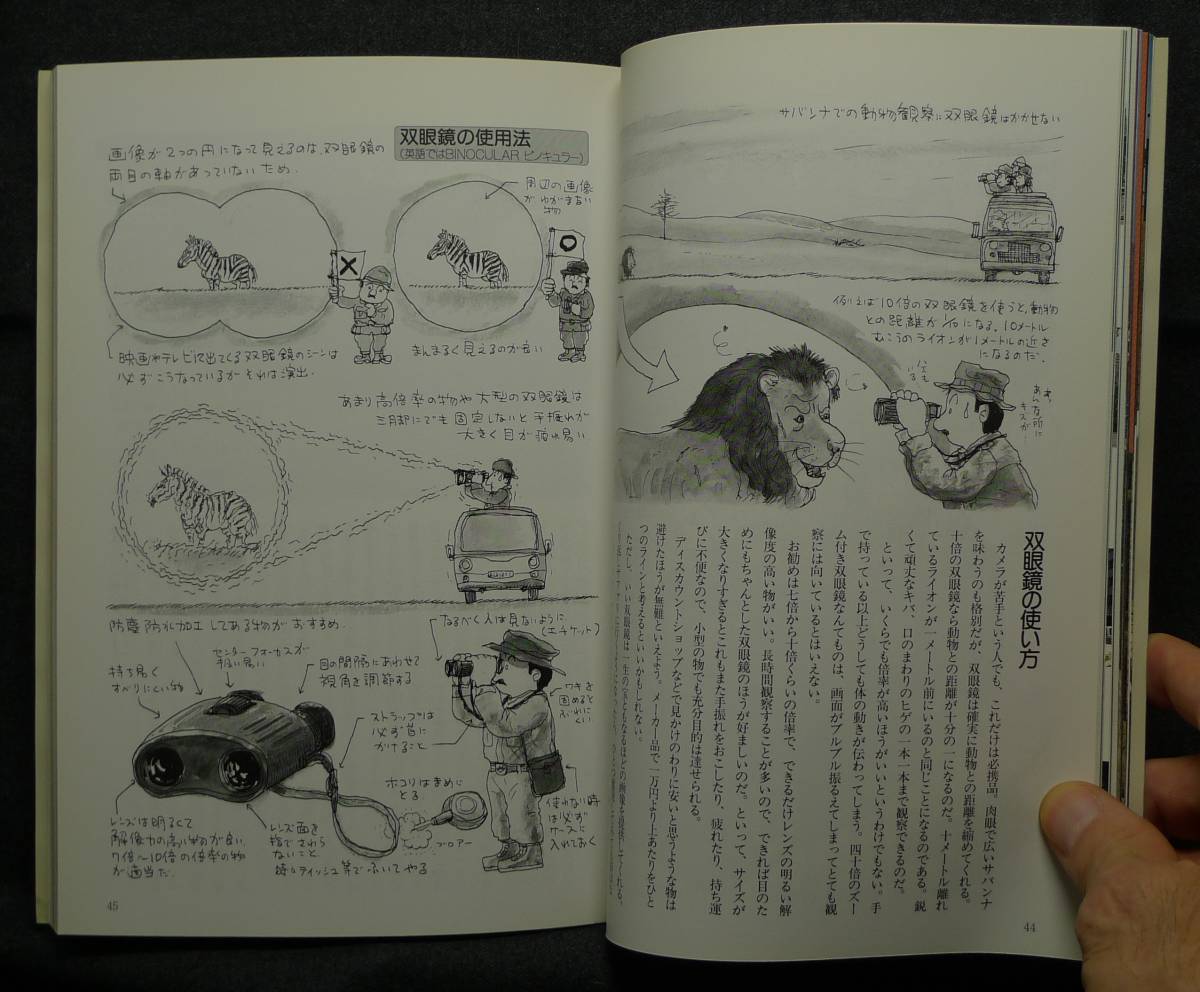 サバンナでの動物観察に双眼鏡はかかせない
例えば10倍の双眼鏡を使うと、動物
との距離が1/10になる。10メートル
むこうのライオンが1メートルの近さ
になるのだ。
あ、
あんな所に
キズが…
双眼鏡の使い方
カメラが苦手という人でも、これだけは必携品。肉眼で広いサバンナ
を味わうのも格別だが、双眼鏡は確実に動物との距離を縮めてくれる。
十倍の双眼鏡なら動物との距離が十分の一になるのだ。十メートル離れ
ているライオンが一メートル前にいるのと同じことになるのである。鋭
くて頑丈なキバ、口のまわりのヒゲの一本一本まで観察できるのだ。
といって、いくらでも倍率が高いほうがいいというわけでもない。手
で持っている以上どうしても体の動きが伝わってしまう。四十倍のズー
ム付き双眼鏡なんてものは、画面がブルブル振るえてしまってとても観
察には向いているとはいえない。
お勧めは七倍から十倍くらいの倍率で、できるだけレンズの明るい解
像度の高い物がいい。長時間観察することが多いので、できれば目のた
めにもちゃんとした双眼鏡のほうが好ましいのだ。といって、サイズが
大きくなりすぎるとこれもまた手振れをおこしたり、疲れたり、持ち運
びに不便なので、小型の物でも充分目的は達せられる。
ディスカウントショップなどで見かけのわりに安いと思うような物は
避けたほうが無難といえよう。メーカー品で一万円より上あたりをひと
つのラインと考えるといいかもしれない。
44
双眼鏡の使用法
(英語ではBINOCULAR ビノキュラー)
画像が2つの円になって見えるのは、双眼鏡の
両目の軸があっていないため.
周辺の画像
がゆがまない
物
映画やテレビに出てくる双眼鏡のシーンは
必ずこうなっているがそれは演出.
まんまるく見えるのが良い
あまり高倍率の物や大型の双眼鏡は
三脚にでも固定しないと手振れが
大きく目が疲れ易い
防塵防水加工してある物がおすすめ.
持ち易く
すべりにくい物
センターフォーカスが
扱い易い
目の間隔にあわせて
視角を調節する
ストラップは
必ず首に
かけること
なるべく人は見ないように
(エチケット)
ワキを
固めると
ぶれに
くい
ホコリはまめに
とる.
ブロアー
使わない時
は必ず
ケースに
入れておく
レンズは明るくて
解像力の高い物が良い.
7倍〜10倍の倍率の物
が適当だ.
レンズ面を
指でさわら
ないこと
45